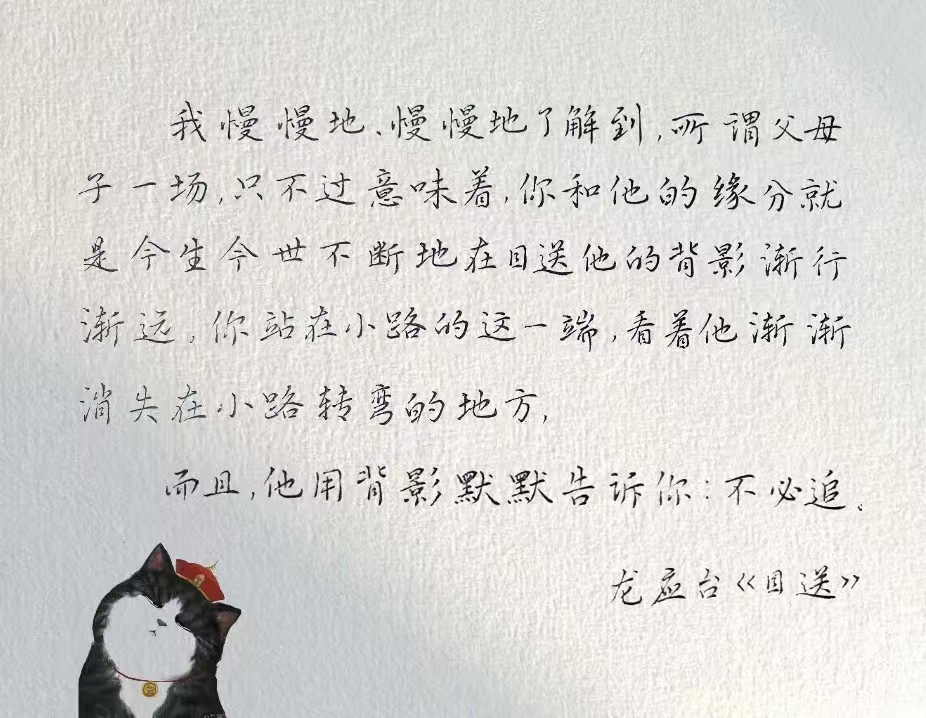 我慢慢地、慢慢地了解到,所谓父母
子一场,只不过意味着,你和他的缘分就
是今生今世不断地在目送他的背影渐行
渐远,你站在小路的这一端,看着他渐渐
消失在小路转弯的地方,
而且,他用背影默默告诉你:不必追。
龙应台《目送》